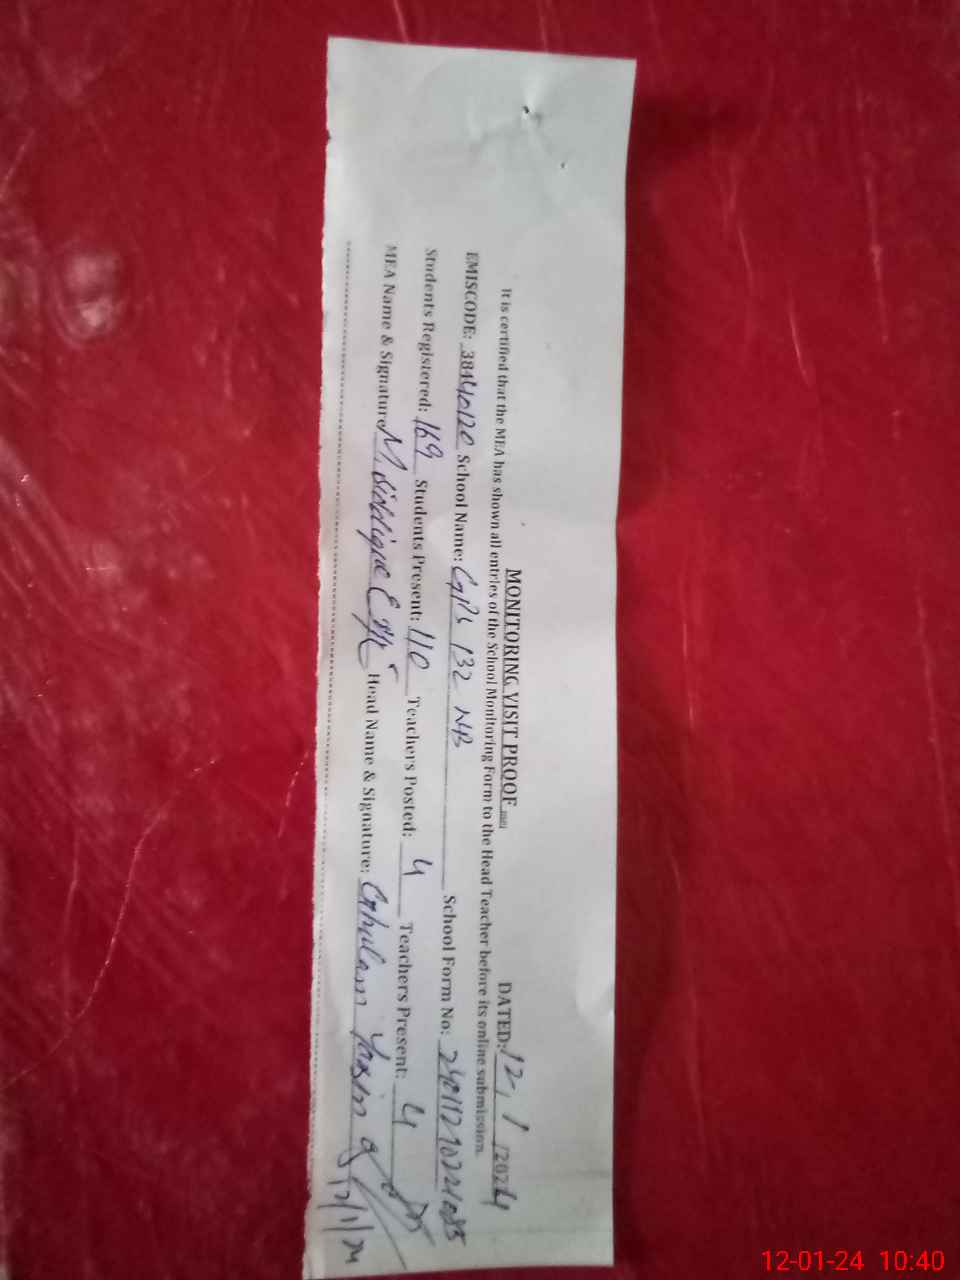 MONITORING VISIT PROOF DATED: 12/1/2024
It is certified that the MEA has shown all entries of the School Monitoring Form to the Head Teacher before its online submission.
EMISCODE: 38440120 School Name: GPS 132 NB School Form No:
Students Registered: 169 Students Present: 110 Teachers Posted: 4 Teachers Present: 4
MEA Name & Signature M Siddique Head Name & Signature: Ghulam Yasin
12/1/24
12-01-24 10:40